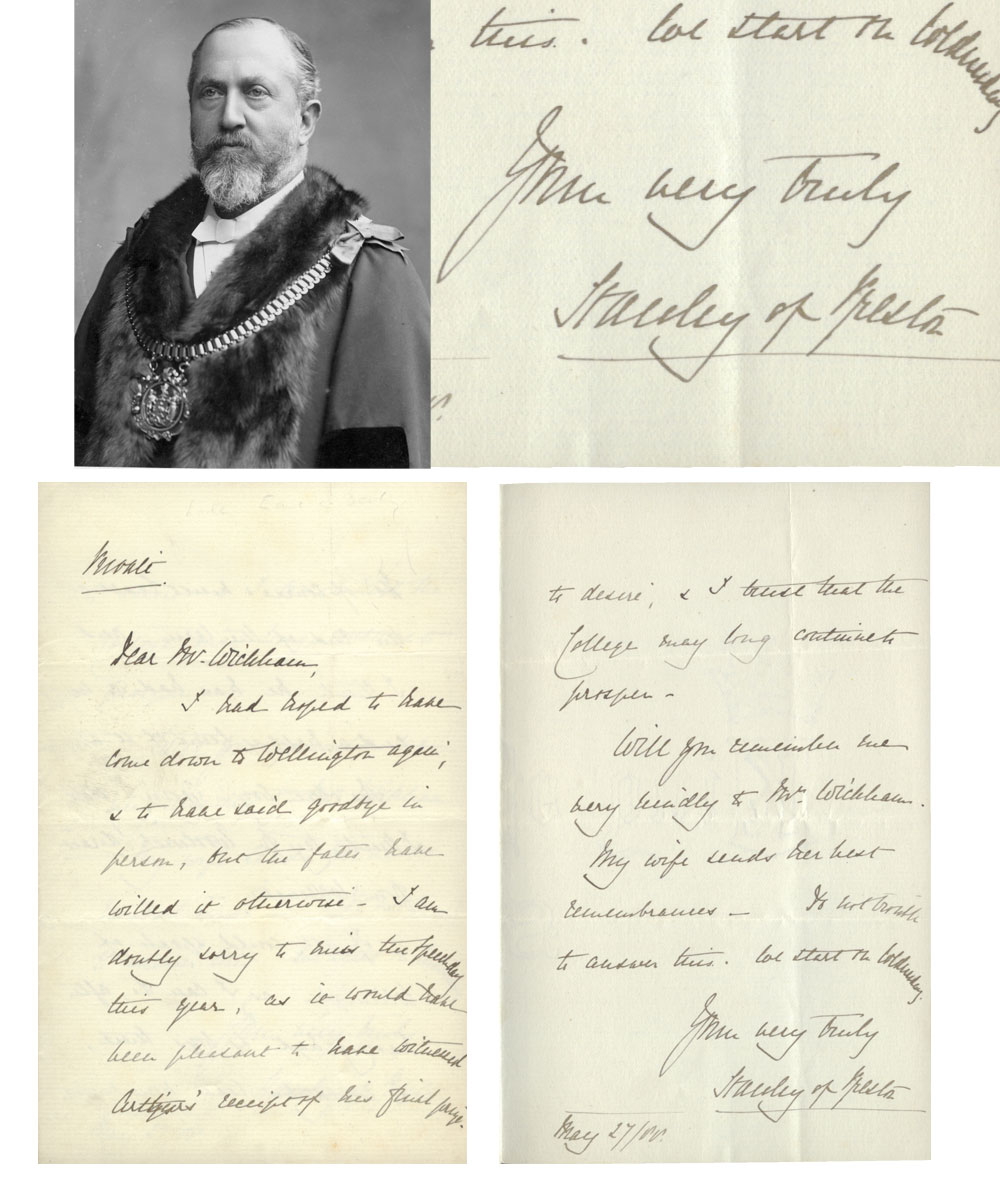 this. We start on Wednesday
Yours very truly
Stanley of Preston
Private
Dear Mr. Wickham,
I had hoped to have
come down to Wellington again,
& to have said goodbye in
person, but the fates have
willed it otherwise – I am
doubly sorry to miss the Speechday
this year, as it would have
been pleasant to have witnessed
Arthur's receipt of his first prize.
to desire, & I trust that the
College may long continue to
prosper –
Will you remember me
very kindly to Mrs. Wickham.
My wife sends her best
remembrances – Do not trouble
to answer this. We start on Wednesday.
Yours very truly
Stanley of Preston
May 27/